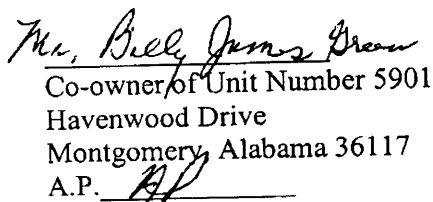 Mr. Billy James Green
Co-owner of Unit Number 5901
Havenwood Drive
Montgomery, Alabama 36117
A.P. AP